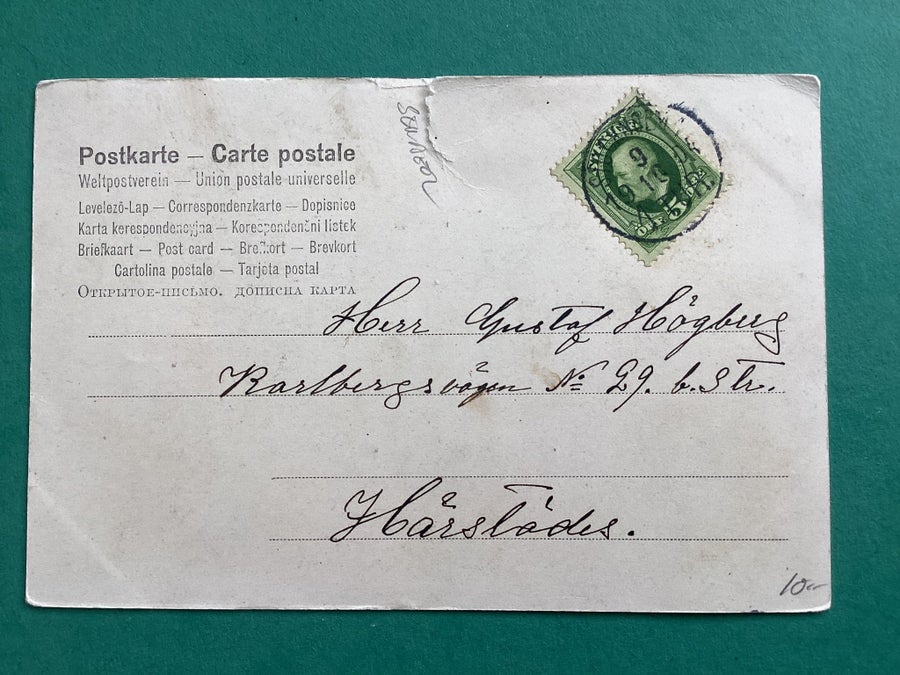 Postkarte – Carte postale
Weltpostverein – Union postale universelle
Levelező-Lap – Correspondenzkarte – Dopisnice
Karta korespondencyjna – Korespondenční lístek
Briefkaart – Post card – Brefkort – Brevkort
Cartolina postale – Tarjeta postal
Открытое-письмо. дописна карта
SVERIGE
5
Herr Gustaf Högberg
Karlbergsvägen № 29. b. 3 tr.
Härstädes.
10–